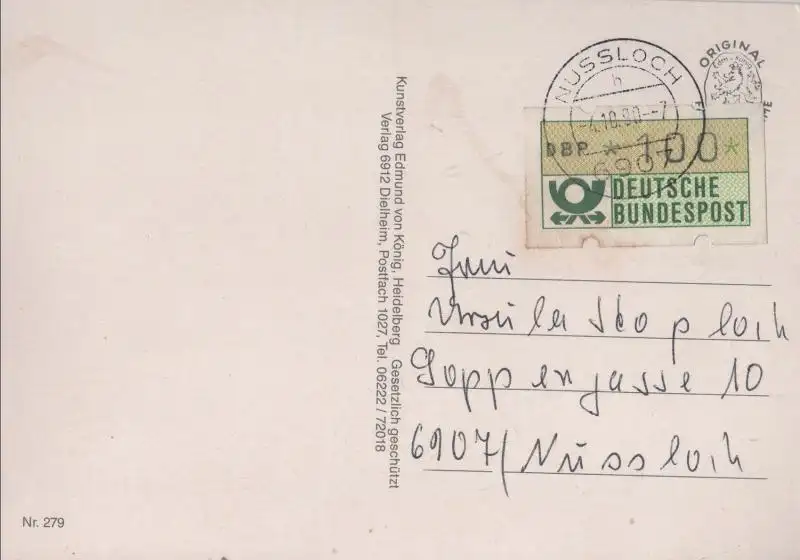 Kunstverlag Edmund von König, Heidelberg Gesetzlich geschützt
Verlag 6912 Dielheim, Postfach 1027, Tel. 06222 / 72018
ORIGINAL
NUSSLOCH
h
-4.10.90.--7
6907
DBP * 100*
DEUTSCHE
BUNDESPOST
Ursula
Goppengasse 10
6907/Nussloch
Nr. 279